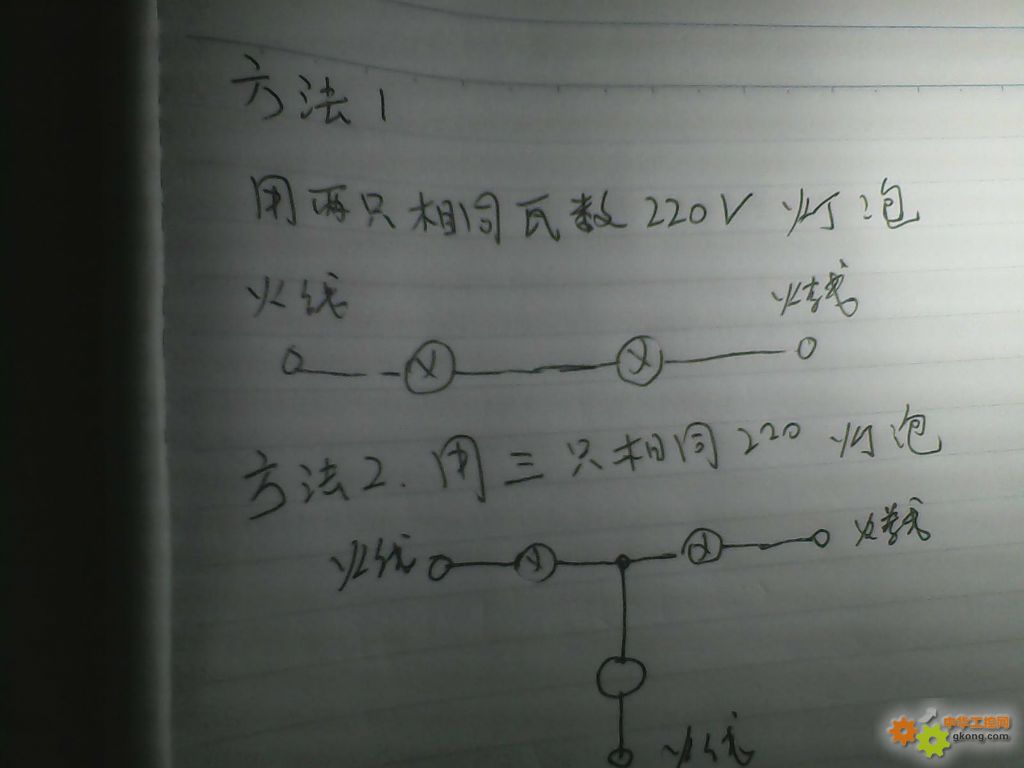 方法1
用两只相同瓦数220V 灯泡
火线 火线
方法2. 用三只相同220 灯泡
火线 火线
火线
中华工控网
gkong.com